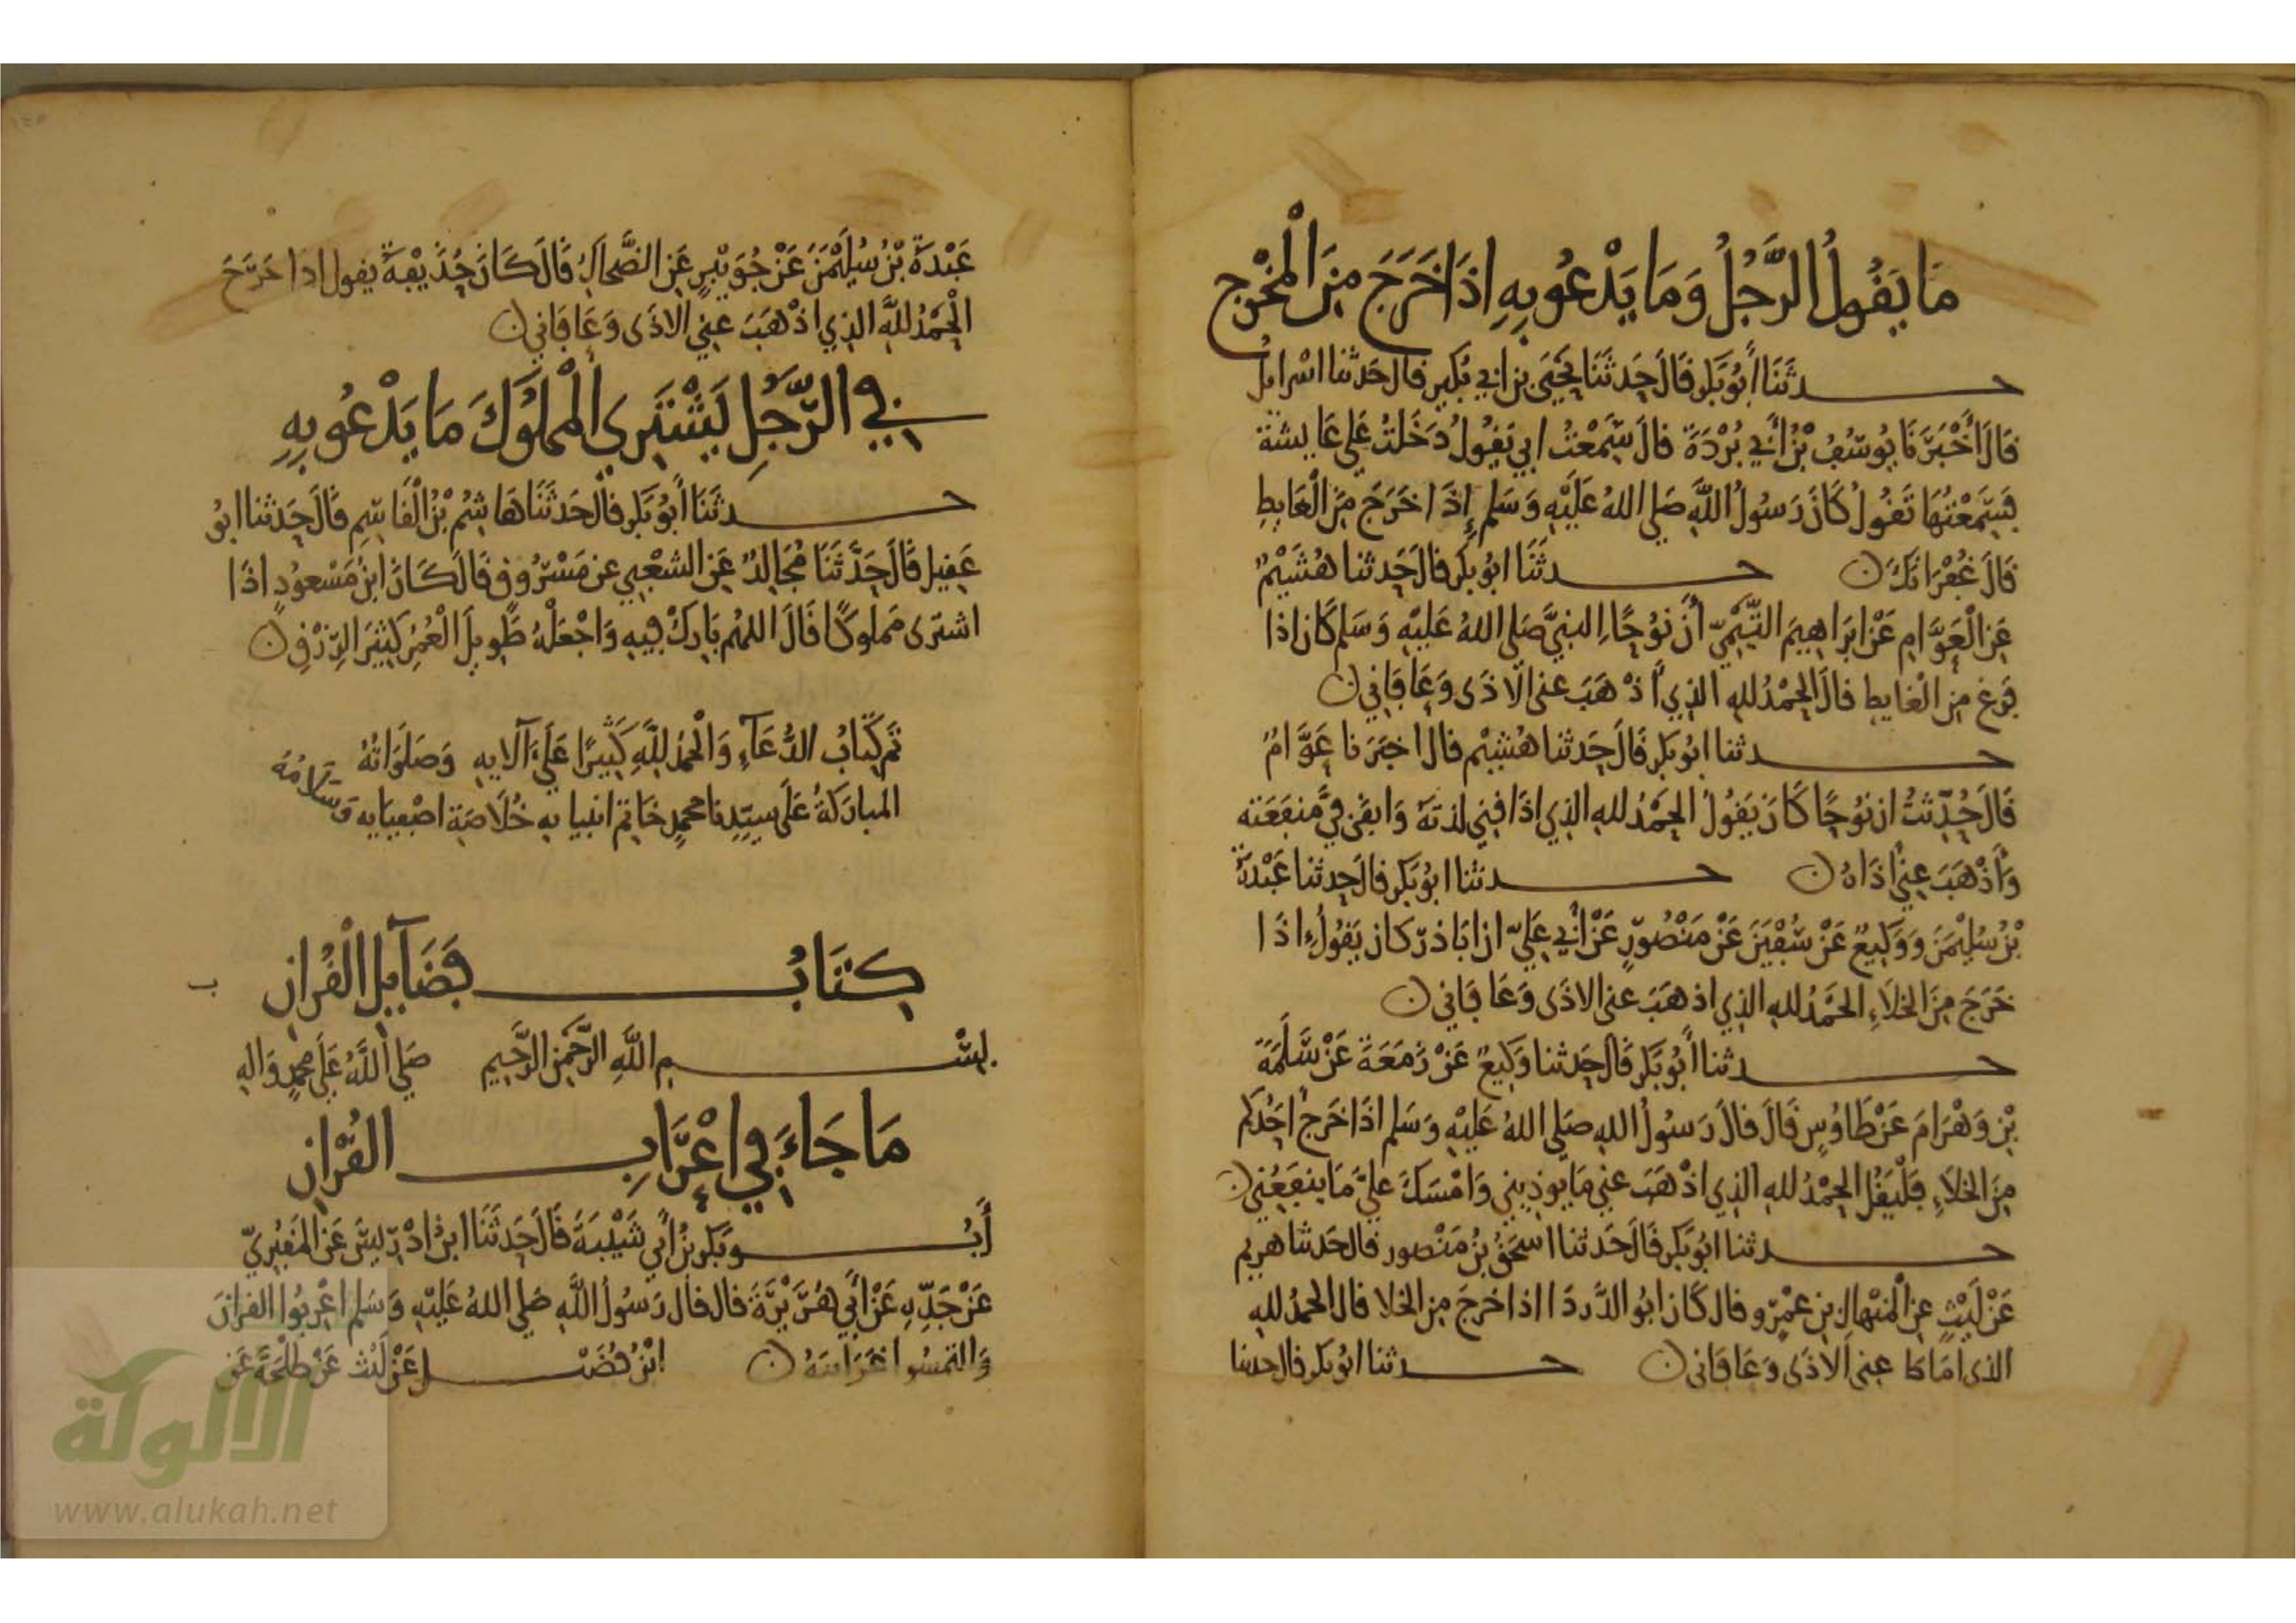 مَا يَقُولُ الرَّجُلُ وَمَا يَدْعُو بِهِ اذَا خَرَجَ مِنَ الْمَخْرَجِ
حدثَنَا أَبُو بَكر قَالَ حَدثَنَا يَحْيَى بن ابي بُكير قال حَدثنا اسْرايل
قَالَ أَخْبَرَنَا يُوسُفُ بْنُ أَبِي بُرْدَةَ قالَ سَمِعْتُ ابي يَقُولُ دَخَلتُ عَلى عَايشة
فَسَمِعْتُهَا تَقُولُ كَانَ رَسُولُ اللَّهِ صَلى اللهُ عَلَيْهِ وَسَلم إِذَا خَرَجَ مِنَ الْغَايطِ
قَالَ غُفْرَانَكَ حدثَنَا ابُو بَكر قالَ حَدثنا هُشَيْمٌ
عَنِ الْعَوَّامِ عَنْ ابرَاهِيمَ التَّيْمِيّ أَنَّ نُوحًا النبيَّ صَلى اللهُ عَلَيْهِ وَسَلم كَانَ اذا
فرَغ مِنَ الْغَايطِ قالَ الحَمْدُ للهِ الذِي أَذْهَبَ عني الاذَى وَعَافَاني
حدثنا ابُو بَكر قَالَ حَدثنا هُشيْم قال اخبَرَنا عَوَّامٌ
قَالَ حُدِّثتُ ان نُوحًا كَانَ يَقُولُ الحَمْدُ للهِ الذِي اذَاقني لذتَهُ وَابقَى فيَّ منفَعَته
وَأَذْهَبَ عَنِّي أذَاهُ حدثنا ابُو بَكر قالَ حَدثنا عَبْدَة
بْنُ سُلَيْمَنَ وَوَكِيعٌ عَنْ سُفْيَنَ عَنْ مَنْصُورٍ عَنْ أَبي عَلِيّ ان ابَا ذرّ كان يَقُولُ اذَا
خَرَجَ مِنَ الخلاَءِ الحَمْدُ للهِ الذِي اذهَبَ عني الاذَى وَعَافَاني
حدثنا أَبُو بَكر قَالَ حَدثنا وَكِيعٌ عَنْ زَمْعَةَ عَنْ سَلَمَةَ
بْنِ وَهْرَامَ عَنْ طَاوُسٍ قَالَ قالَ رَسُولُ اللهِ صَلى اللهُ عَلَيْهِ وَسَلم اذَا خَرَجَ احَدُكم
مِنَ الخلاَءِ فَلْيَقُل الحَمْدُ للهِ الذِي اذْهَبَ عَني مَا يُوذِيني وَامْسَكَ عَليَّ مَا ينفَعُني
حدثنا ابُو بَكر قَالَ حَدثنا اسْحَقُ بْنُ مَنْصُور قالَ حَدثنا هريم
عَنْ لَيْثٍ عَنِ الْمنْهالِ بن عَمْرٍو قال كَانَ ابُو الدَّردَا اذا خرجَ مِنَ الخلا قال الحمدُ للهِ
الذى امَاطَ عَنى الاَذَى وَعَافَانى حدثنا ابُو بَكر قال حدثنا
عَبْدَةُ بْنُ سُلَيْمَنَ عَنْ جُوَيْبِرٍ عَنِ الضَّحاكِ قَالَ كَانَ حُذَيْفَةُ يقول اذا خَرَجَ
الْحَمْدُ للَّهِ الذِي اذْهَبَ عني الاذَى وَعَافَاني
في الرَّجُلِ يَشْتَرِي الْمَمْلُوكَ مَا يَدْعُو بِهِ
حدثَنَا أَبُو بَكر قالَ حَدثَنَا هَاشِمُ بْنُ الْقَاسِمِ قَالَ حَدثنا ابُو
عَقِيل قَالَ حَدَّثَنَا مُجَالِدٌ عَنِ الشَّعْبِي عن مَسْرُوق قَالَ كَانَ ابنُ مَسْعودٍ اذَا
اشترَى مَملوكًا قَالَ اللهُم بَارِكْ فِيهِ وَاجْعَلْهُ طَوِيلَ الْعُمُرِ كَثِيرَ الرِّزْقِ
تَم كِتابُ الدُّعَآءِ وَالْحمْدُ للَّهِ كَثِيرًا عَلَى آلايهِ وَصَلَوَاتُهُ وَسَلامُهُ
المبارَكَةُ عَلَى سيِّدِنا محمدٍ خاتم انبيايه خُلاَصَةِ اصْفِيَايه
كِتَابُ فَضَآيلِ الْقُرْانِ
بسم اللَّهِ الرَّحْمَنِ الرَّحِيمِ صَلى اللَّهُ عَلَى محمدٍ وَالهِ
مَا جَاءَ فِي إِعْرَابِ القُرْانِ
أَبُو بَكر بْنُ أَبي شَيْبَةَ قَالَ حَدَثَنَا ابنُ ادْرِيسَ عَنِ الْمَقْبُرِيِّ
عَنْ جَدِّهِ عَنْ أَبي هُرَيْرَةَ قال قال رَسُولُ اللَّهِ صَلى اللهُ عَليْهِ وَسَلم اعْربُوا القرانَ
وَالتمسُوا غَرَايبَهُ ابْنُ فُضَيْل عَنْ لَيْث عَنْ طلحَةَ عَن
الألوكة
www.alukah.net